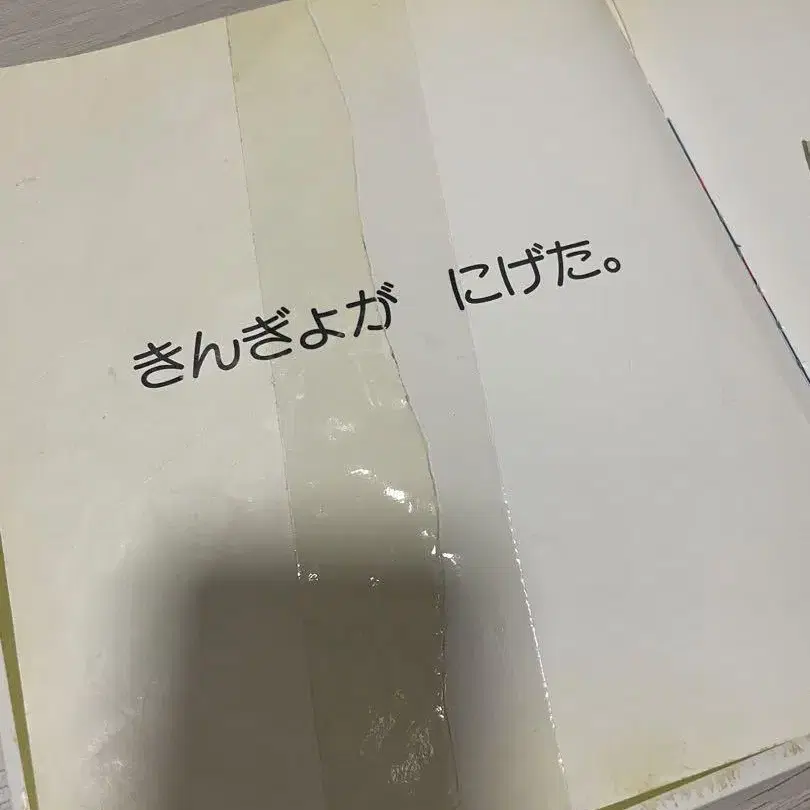 きんぎょが　にげた。